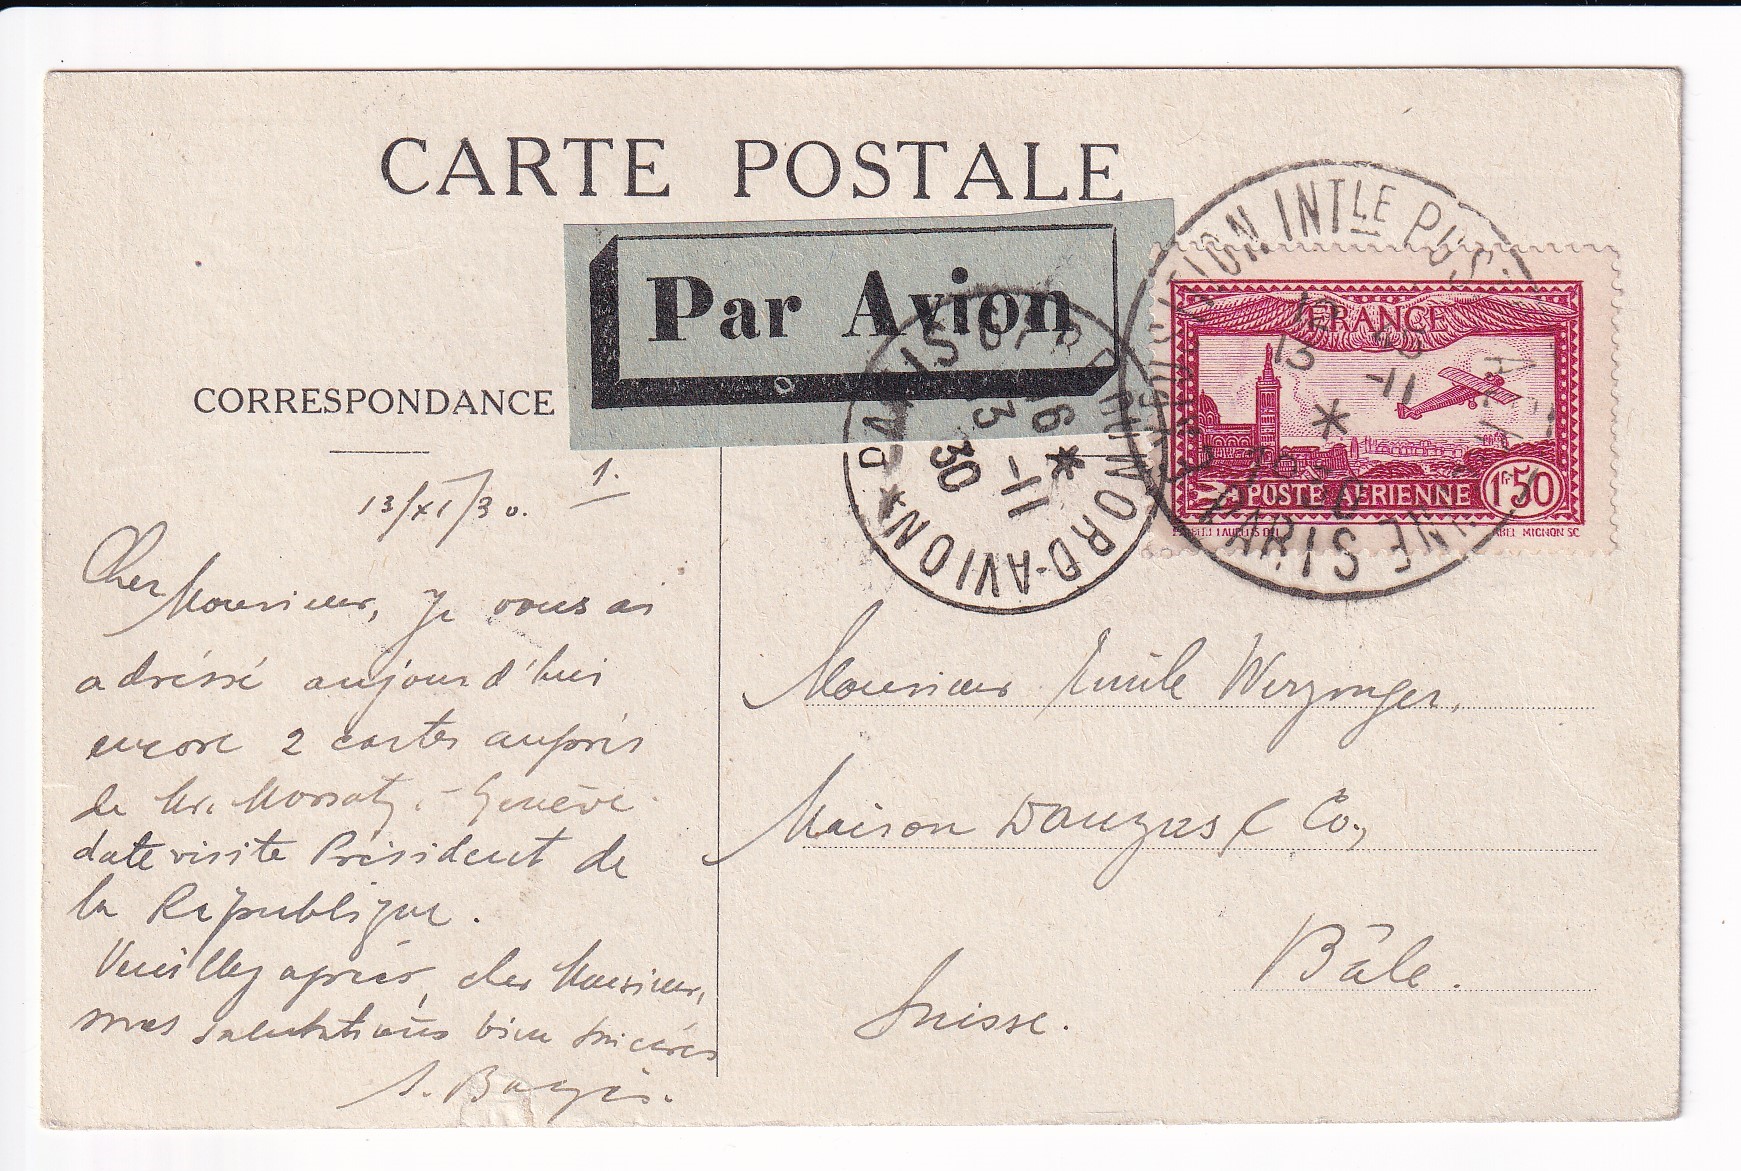 CARTE POSTALE
Par Avion
CORRESPONDANCE
13/XI/30.
1.
Cher Monsieur, je vous ai
adressé aujourd'hui
encore 2 cartes auprès
de Mr. Genève
date visite Président de
la République.
Veuillez agréer, cher Monsieur,
mes salutations bien sincères
Monsieur Emile
Maison & Co,
Bâle.
Suisse.
FRANCE
POSTE AÉRIENNE
1Fr50
ABEL MIGNON SC
PARIS GARE DU NORD-AVION
16 *
13 -11
30
INTLE
PARIS
13 -11
*
1930